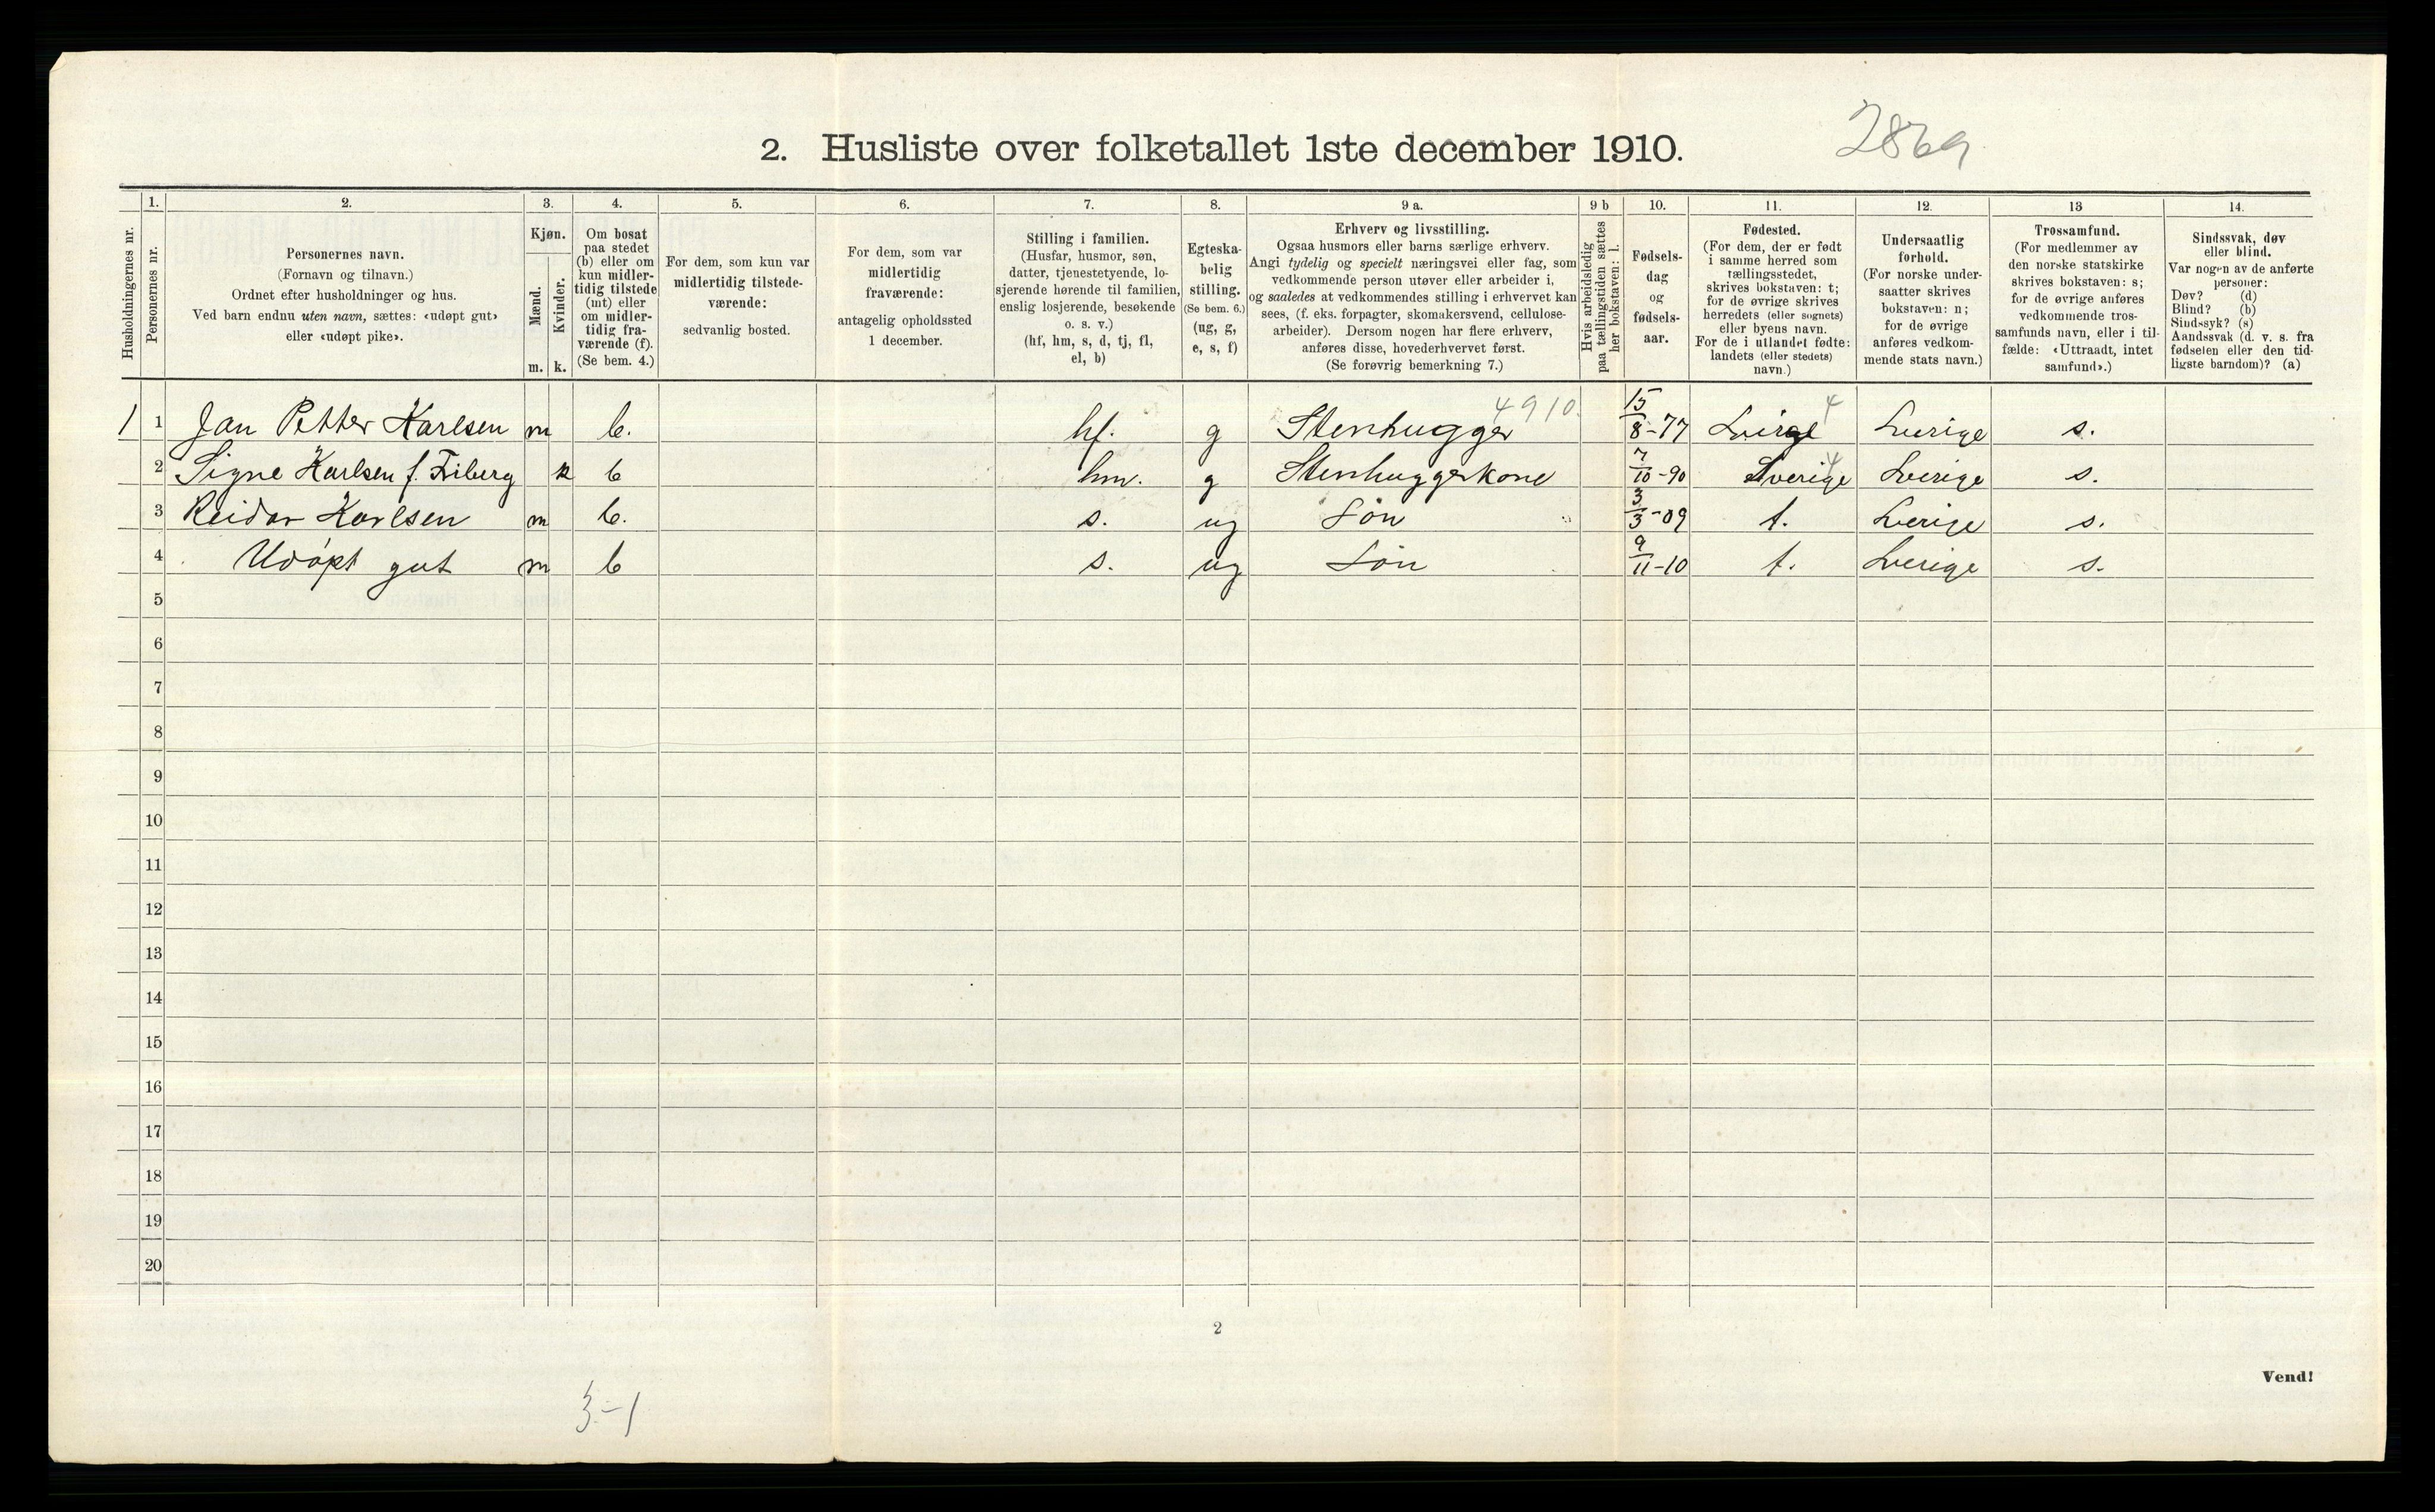 2. Husliste over folketallet 1ste december 1910.
Husholdningernes nr.
1.
Personernes nr.
2.
Personernes navn.
(Fornavn og tilnavn.)
Ordnet efter husholdninger og hus.
Ved barn endnu uten navn, sættes: «udøpt gut»
eller «udøpt pike».
3.
Kjøn.
Mænd.
Kvinder.
m. k.
4.
Om bosat
paa stedet
(b) eller om
kun midler-
tidig tilstede
(mt) eller
om midler-
tidig fra-
værende (f).
(Se bem. 4.)
5.
For dem, som kun var
midlertidig tilstede-
værende:
sedvanlig bosted.
6.
For dem, som var
midlertidig
fraværende:
antagelig opholdssted
1 december.
7.
Stilling i familien.
(Husfar, husmor, søn,
datter, tjenestetyende, lo-
sjerende hørende til familien,
enslig losjerende, besøkende
o. s. v.)
(hf, hm, s, d, tj, fl,
el, b)
8.
Egteska-
belig
stilling.
(Se bem. 6.)
(ug, g,
e, s, f)
9 a.
Erhverv og livsstilling.
Ogsaa husmors eller barns særlige erhverv.
Angi tydelig og specielt næringsvei eller fag, som
vedkommende person utøver eller arbeider i,
og saaledes at vedkommendes stilling i erhvervet kan
sees, (f. eks. forpagter, skomakersvend, cellulose-
arbeider). Dersom nogen har flere erhverv,
anføres disse, hovederhvervet først.
(Se forøvrig bemerkning 7.)
9 b
Hvis arbeidsledig
paa tællingstiden sættes
her bokstaven: l.
10.
Fødsels-
dag
og
fødsels-
aar.
11.
Fødested.
(For dem, der er født
i samme herred som
tællingsstedet,
skrives bokstaven: t;
for de øvrige skrives
herredets (eller sognets)
eller byens navn.
For de i utlandet fødte:
landets (eller stedets)
navn.)
12.
Undersaatlig
forhold.
(For norske under-
saatter skrives
bokstaven: n;
for de øvrige
anføres vedkom-
mende stats navn.)
13
Trossamfund.
(For medlemmer av
den norske statskirke
skrives bokstaven: s;
for de øvrige anføres
vedkommende tros-
samfunds navn, eller i til-
fælde: «Uttraadt, intet
samfund».)
14.
Sindssvak, døv
eller blind.
Var nogen av de anførte
personer:
Døv? (d)
Blind? (b)
Sindssyk? (s)
Aandssvak (d. v. s. fra
fødselen eller den tid-
ligste barndom)? (a)
4910.
1 1 Jan Petter Karlsen m b. hf. g Stenhugger 15/8-77 Sverige 4 Sverige s.
2 Signe Karlsen f. Friberg k b hm. g Stenhuggerkone 7/10-90 Sverige 4 Sverige s.
3 Reidar Karlsen m b. s. ug Søn 3/3-09 t. Sverige s.
4 Udøpt gut m b s. ug Søn 9/11-10 t. Sverige s.
5
6
7
8
9
10
11
12
13
14
15
16
17
18
19
20
2
Vend!
3-1